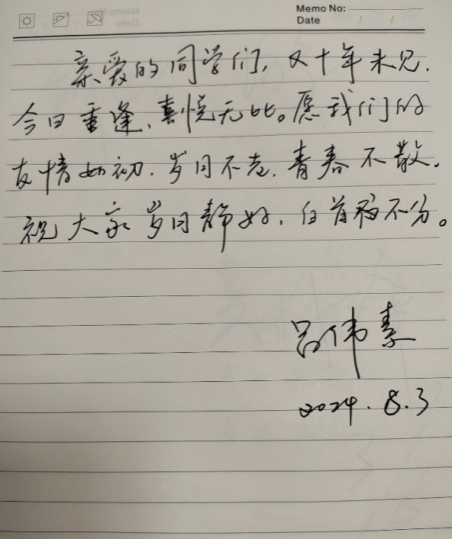 Memo No:
Date / /
亲爱的同学们，又十年未见.
今日重逢，喜悦无比。愿我们的
友情如初，岁月不老，青春不散。
祝大家岁月静好，白首不分。
吕伟素
2024.8.3